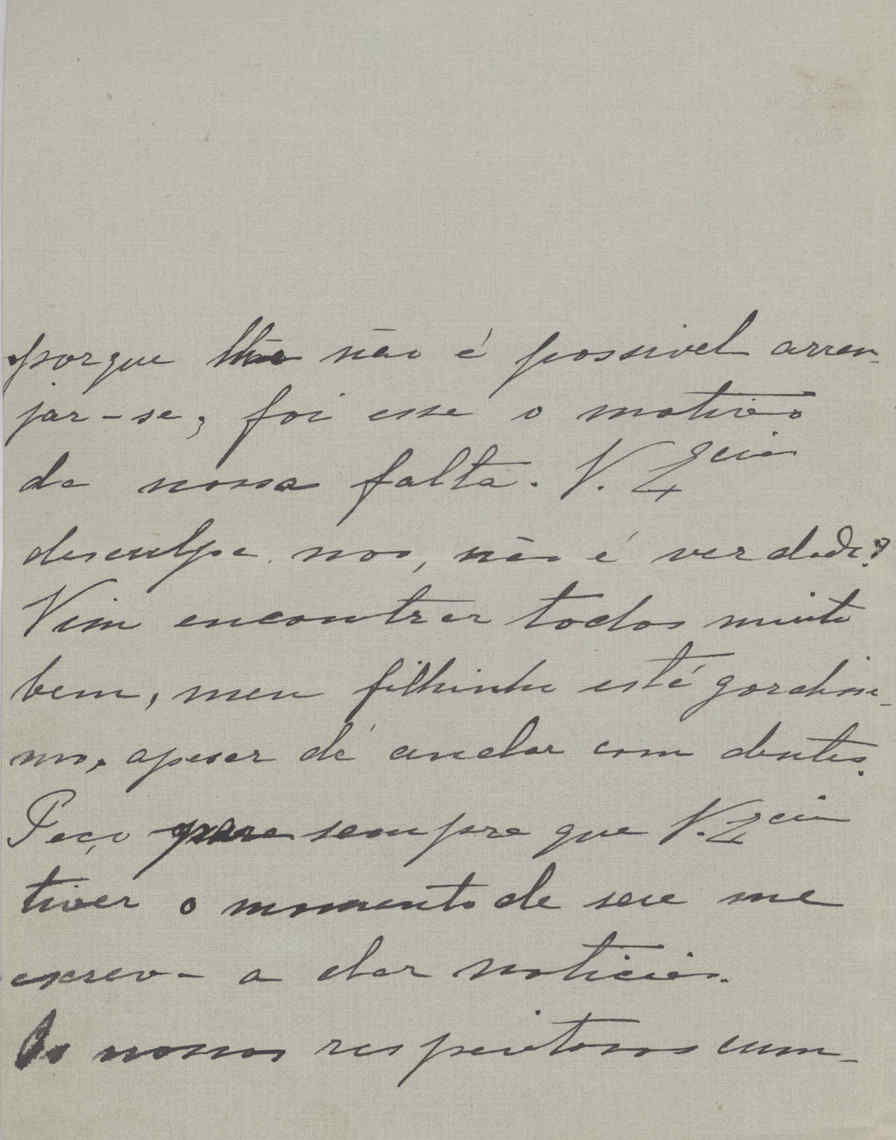 porque não é possivel arran-
jar-se, foi esse o motivo
da nossa falta. V. Excia
desculpa nos, não é verdade?
Vim encontrar todos muito
bem, meu filhinho está gordissi-
mo, apesar de andar com dentes.
Peço para sempre que V. Excia
tiver o momento de seu me
escrever a dar noticias.
Os nossos respeitosos cum-